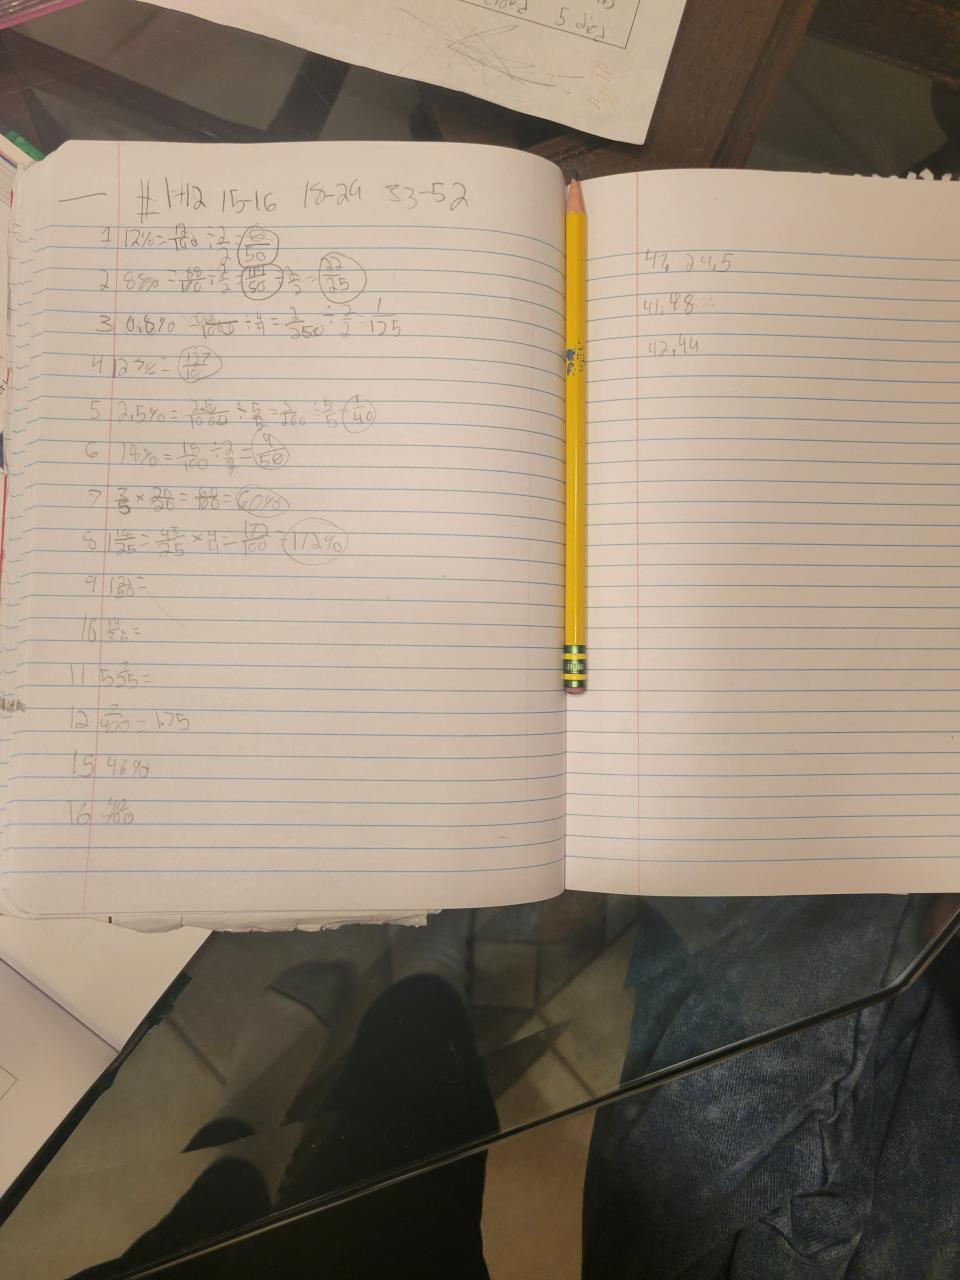 # 1-12 15-16 18-24 33-52
1 12% = 12/100 ÷ 2/2 = 6/50
2 88% = 88/100 ÷ 2/2 = 44/50 ÷ 2/2 = 22/25
3 0.8% = /1000 ÷ 4/4 = 2/250 ÷ 2/2 = 1/125
4 127% = 127/100
5 2.5% = 25/1000 ÷ 5/5 = 5/200 ÷ 5/5 = 1/40
6 18% = 18/100 ÷ 2/2 = 9/50
7 3/5 × 20/20 = 60/100 = 60%
8 1 18/25 = 43/25 × 4/4 = 172/100 = 172%
9
10
11 5
12 7/400 = 1.75
15 46%
16
47. 24.5
41. 88
42. 44